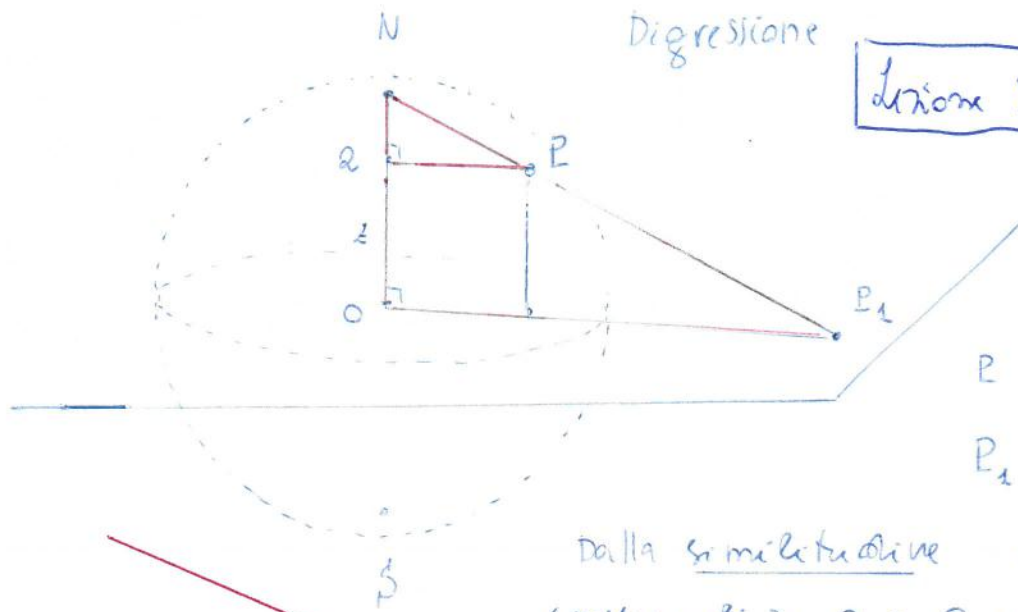 N
Digressione
Lezione
Q
P
z
O
P1
P
P1
S
Dalla similitudine